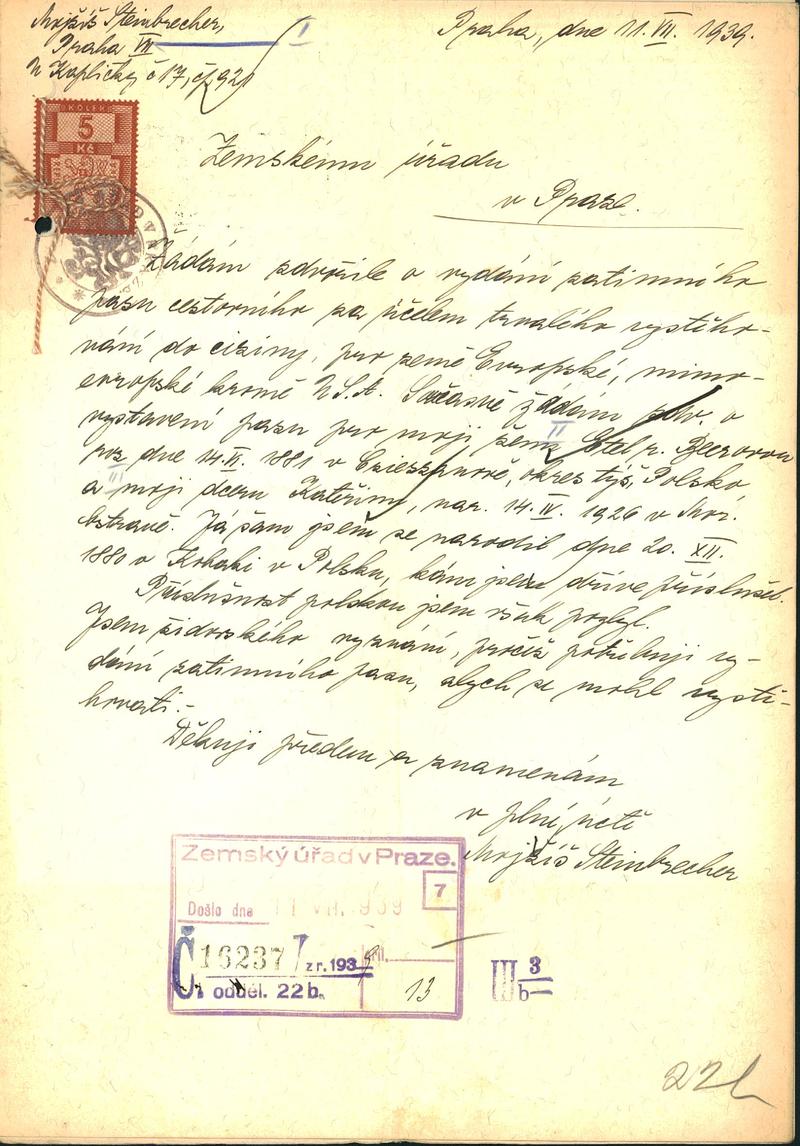 Mojžíš Steinbrecher,
Praha VII
U Kapličky č 17, čp 921
I
Praha, dne 11. VII. 1939.
KOLEK
5
Kč
Zemskému úřadu
v Praze.
Žádám zdvořile o vydání zatimního
pasu cestovního za účelem trvalého vystěho-
vání do ciziny, pro země Evropské, mimo-
evropské kromě U.S.A. Současně žádám zdv. o
vystavení pasu pro moji ženu Etel r.
II
nar. dne 14. II. 1881 v okres týž, Polsko
III
a moji dceru Kateřinu, nar. 14. IV. 1926 v Mor.
Ostravě. Já sám jsem se narodil dne 20. XII.
1880 v v Polsku, kam jsem dříve příslušel.
Příslušnost polskou jsem však pozbyl.
Jsem židovského vyznání, pročež potřebuji vy-
dání zatimního pasu, abych se mohl vystě-
hovati.-
Děkuji předem a znamenám
v plné úctě
Mojžíš Steinbrecher
Zemský úřad v Praze.
7
Došlo dne 11 VII. 939
Č. 16237 z r. 1939 příl.
odděl. 22b. 13
III 3
b-
22b